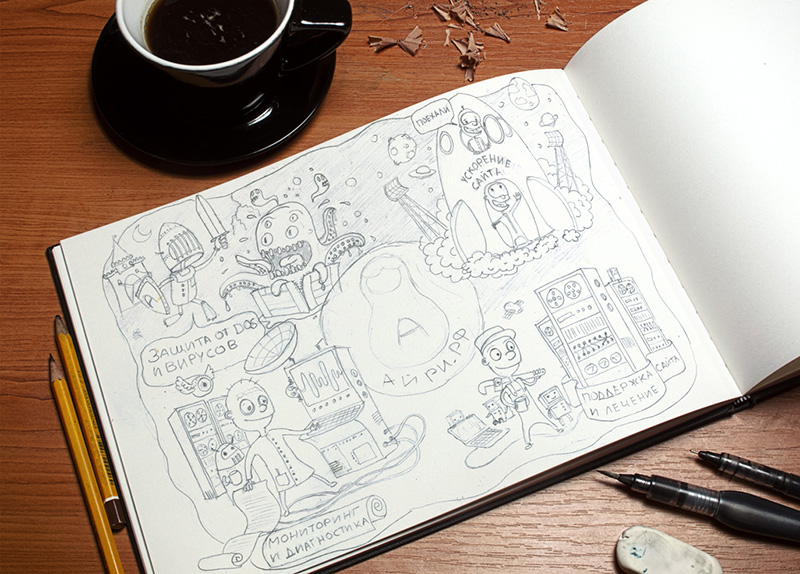 ПОЕХАЛИ
УСКОРЕНИЕ
САЙТА
ЗАЩИТА ОТ DOS
И ВИРУСОВ
А
АЙРИ.РФ
ПОДДЕРЖКА
И ЛЕЧЕНИЕ САЙТА
МОНИТОРИНГ
И ДИАГНОСТИКА